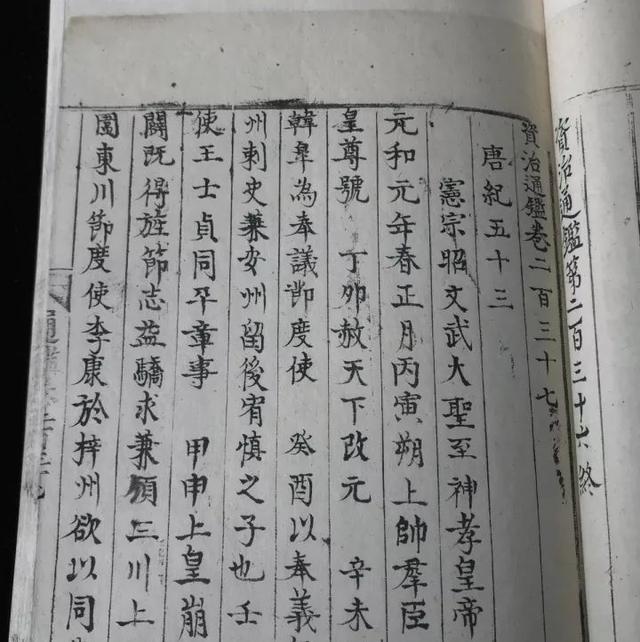 資治通鑑第二百三十六終
資治通鑑卷二百三十七
唐紀五十三
憲宗昭文武大聖至神孝皇帝
元和元年春正月丙寅朔上帥羣臣
皇尊號 丁卯赦天下改元 辛未
韓皐為奉議節度使 癸酉以奉義
州刺史兼安州留後宥慎之子也壬
使王士貞同平章事 甲申上皇崩
闢既得旌節志益驕求兼領三川上
圍東川節度使李康於梓州欲以同